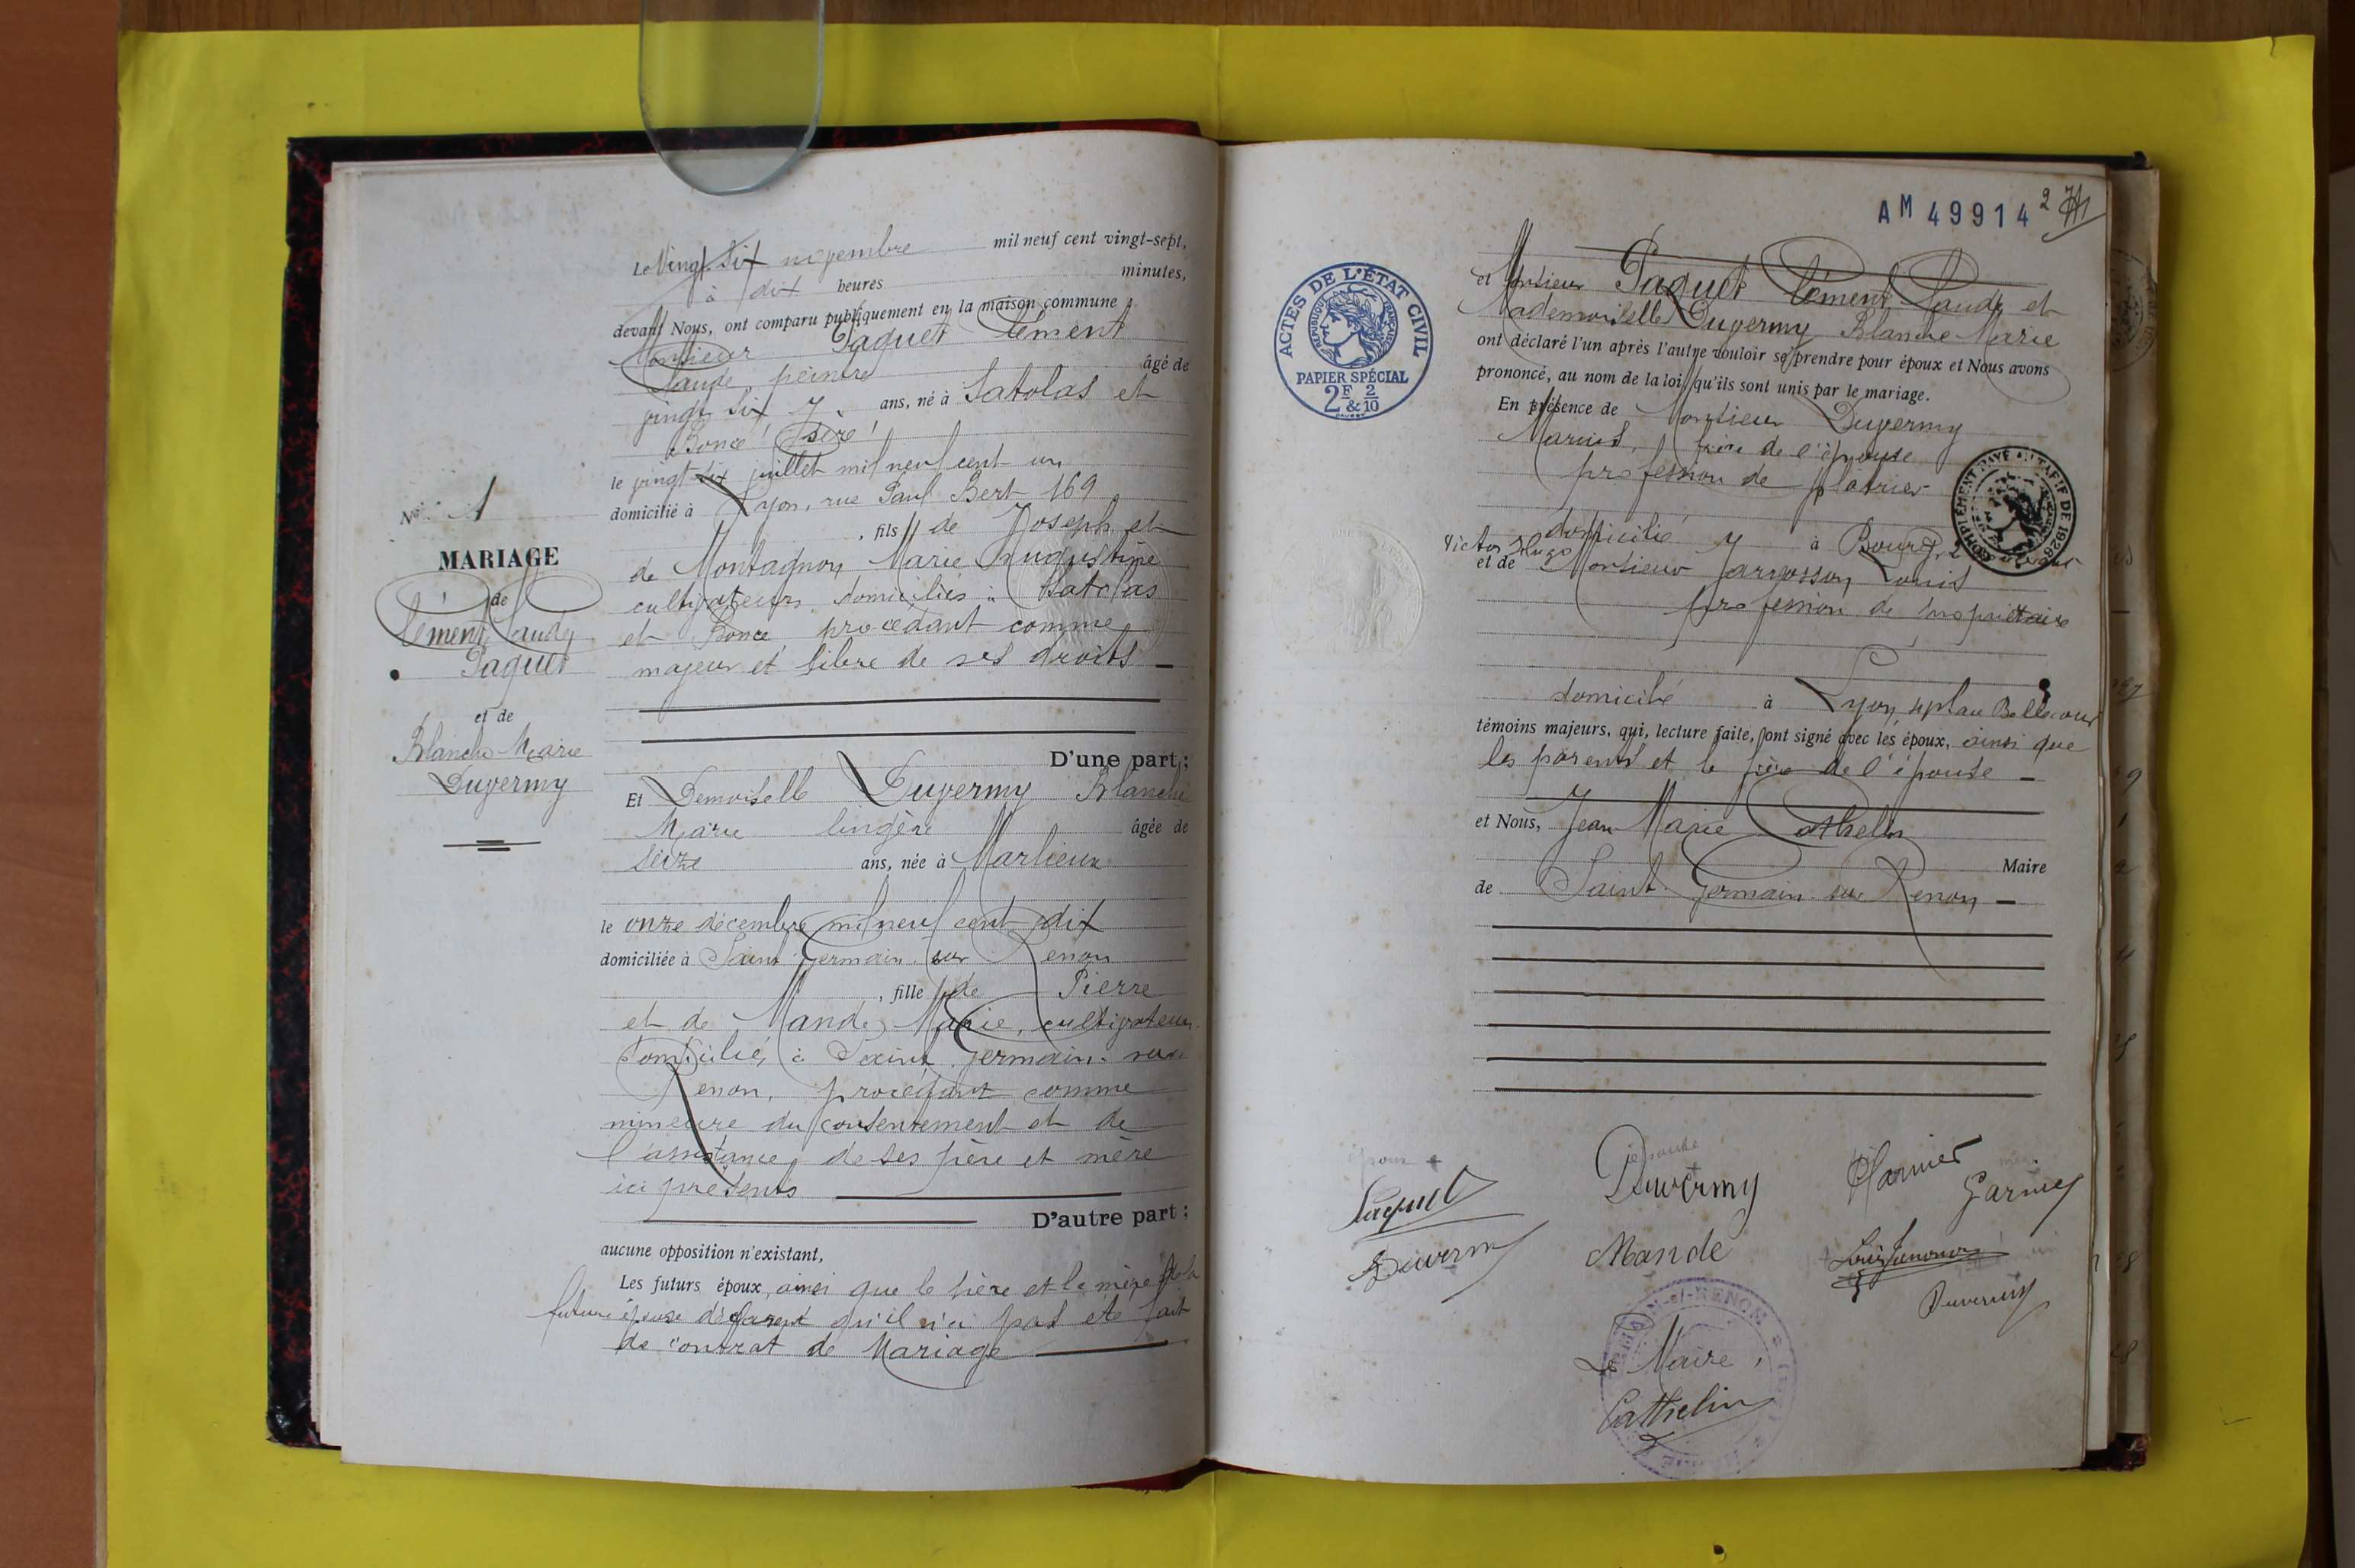 Le Vingt six novembre mil neuf cent vingt-sept,
à dix heures minutes,
devant Nous, ont comparu publiquement en la maison commune :
Monsieur Paquet Clément
Claude, peintre âgé de
vingt six ans, né à Satolas et
Bonce (Isère)
le vingt six juillet mil neuf cent un
domicilié à Lyon, rue Paul Bert 169
, fils de Joseph et
de Montagnon Marie Augustine
cultivateurs domiciliés à Satolas
et Bonce procédant comme
majeur et libre de ses droits
No 1
MARIAGE
de
Clément Claude
Paquet
et de
Blanche Marie
Duvermy
D'une part ;
Et Demoiselle Duvermy Blanche
Marie lingère âgée de
seize ans, née à Marlieux
le onze décembre mil neuf cent dix
domiciliée à Saint Germain sur Renon
, fille de Pierre
et de Mande Marie, cultivateurs
domiciliés à Saint Germain sur
Renon, procédant comme
mineure du consentement et de
l'assistance de ses père et mère
ici présents
D'autre part ;
aucune opposition n'existant,
Les futurs époux, ainsi que le père et la mère de la
future épouse déclarent qu'il n'a pas été fait
de contrat de Mariage
AM 49914
2
ACTES DE L'ÉTAT CIVIL
RÉPUBLIQUE FRANÇAISE
PAPIER SPÉCIAL
2F 2/10
et Monsieur Paquet Clément Claude et
Mademoiselle Duvermy Blanche Marie
ont déclaré l'un après l'autre vouloir se prendre pour époux et Nous avons
prononcé, au nom de la loi, qu'ils sont unis par le mariage.
En présence de Monsieur Duvermy
Marius, frère de l'épouse
profession de plâtrier
COMPLÉMENT PAYÉ AU TARIF DE 1926
domicilié à Bourg, 2
Victor Hugo
et de Monsieur Louis
profession de propriétaire
domicilié à Lyon, place Bellecour
témoins majeurs, qui, lecture faite, ont signé avec les époux, ainsi que
les parents et le frère de l'épouse
et Nous, Jean Marie Cathelin
Maire
de Saint Germain sur Renon
époux
épouse
Paquet
Duvermy
Garnier
Duvermy
Mande
Duvermy
Le Maire,
Cathelin